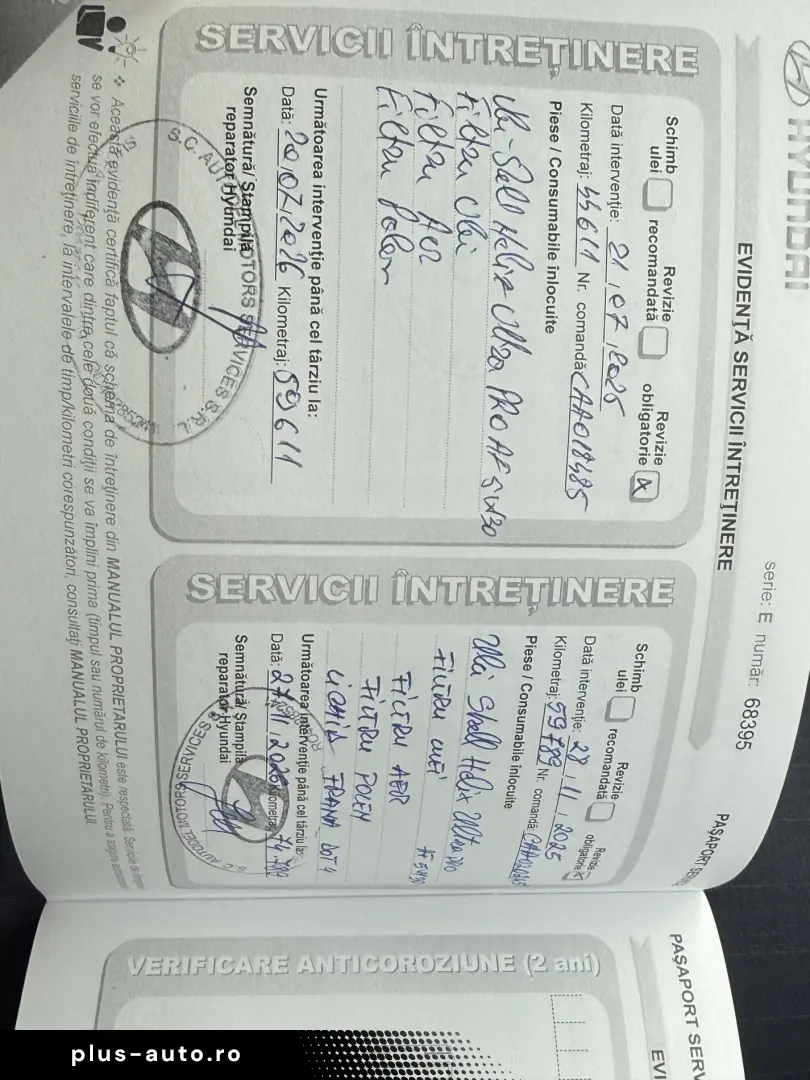 HYUNDAI
EVIDENȚĂ SERVICII ÎNTREȚINERE
serie: E număr: 68395
SERVICII ÎNTREȚINERE
Schimb ulei
Revizie recomandată
Revizie obligatorie X
Dată intervenție: 21.07.2025
Kilometraj: 44611 Nr. comandă CAA018485
Piese / Consumabile înlocuite
Ulei Shell Helix Ultra PRO AF 5W30
Filtru Ulei
Filtru Aer
Filtru Polen
Următoarea intervenție până cel târziu la:
Dată: 20.07.2026 Kilometraj: 59611
Semnătură/Ștampilă
reparator Hyundai
SERVICII ÎNTREȚINERE
Schimb ulei
Revizie recomandată
Revizie obligatorie X
Dată intervenție: 28.11.2025
Kilometraj: 59789 Nr. comandă
Piese / Consumabile înlocuite
Ulei Shell Helix Ultra PRO
AF 5W30
FILTRU ULEI
FILTRU AER
FILTRU POLEN
LICHID FRANA DOT 4
Următoarea intervenție până cel târziu la:
Dată: 27.11.2026 Kilometraj: 74789
Semnătură/Ștampilă
reparator Hyundai
❖ Această evidență certifică faptul că schema de întreținere din MANUALUL PROPRIETARULUI este respectată.
se vor efectua indiferent care dintre cele două condiții se va împlini prima (timpul sau numărul de kilometri). Pentru a
serviciile de întreținere, la intervalele de timp/kilometri corespunzători, consultați MANUALUL PROPRIETARULUI.
PAȘAPORT SERV
EVI
VERIFICARE ANTICOROZIUNE (2 ani)
plus-auto.ro